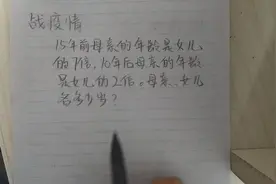 战疫情
15年前母亲的年龄是女儿
的7倍,10年后母亲的年龄
是女儿的2倍。母亲、女儿
各多少岁?